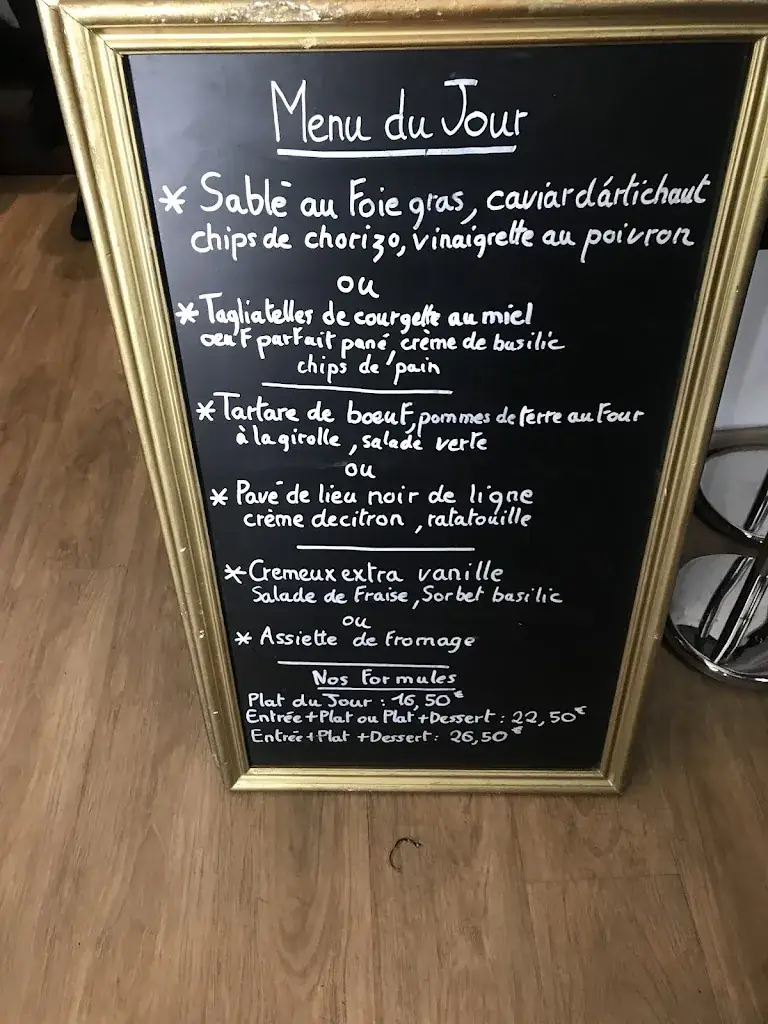 Menu du Jour
* Sablé au Foie gras, caviar d'artichaut
chips de chorizo, vinaigrette au poivron
ou
* Tagliatelles de courgette au miel
oeuf parfait pané, crème de basilic
chips de pain
* Tartare de boeuf, pommes de terre au Four
à la girolle, salade verte
ou
* Pavé de lieu noir de ligne
crème de citron, ratatouille
* Cremeux extra vanille
Salade de Fraise, Sorbet basilic
ou
* Assiette de fromage
Nos Formules
Plat du Jour : 16,50€
Entrée+Plat ou Plat+Dessert : 22,50€
Entrée+Plat+Dessert : 26,50€